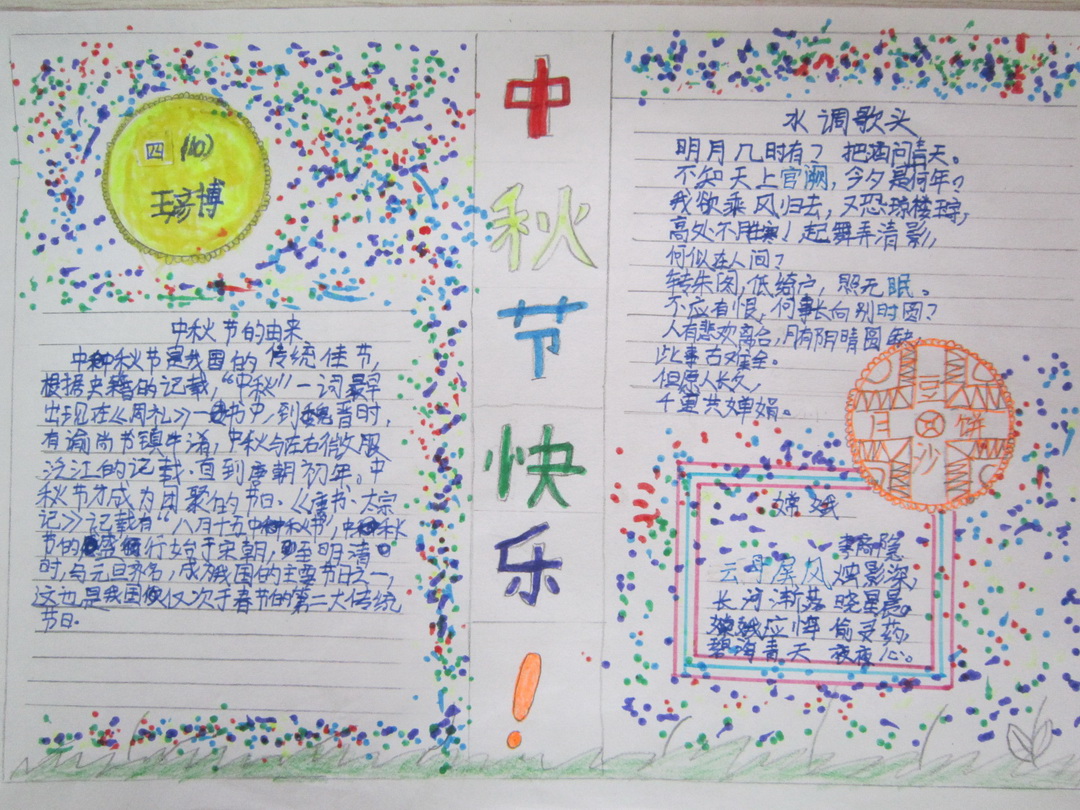 四(10)
王彦博
中秋节的由来
中秋节是我国的传统佳节,
根据史籍的记载,“中秋”一词最早
出现在《周礼》一书中,到魏晋时,
有谕尚书镇牛渚,中秋与左右微服
泛江的记载.直到唐朝初年。中
秋节才成为固的节日.《唐书·太宗
记》记载有“八月十五中秋节”,中秋
节的盛行始于宋朝,至明清
时,与元旦齐名,成为我国的主要节日之一,
这也是我国仅次于春节的第二大传统
节日.
中
秋
节
快
乐
!
水调歌头
明月几时有? 把酒问青天。
不知天上官阙,今夕是何年?
我欲乘风归去,又恐琼楼玉宇,
高处不胜寒!起舞弄清影,
何似在人间?
转朱阁,低绮户,照无眠。
不应有恨,何事长向别时圆?
人有悲欢离合,月有阴晴圆缺,
此事古难全。
但愿人长久,
千里共婵娟。
豆
月 饼
沙
嫦娥
李商隐
云母屏风烛影深,
长河渐落晓星晨。
嫦娥应悔偷灵药,
碧海青天夜夜心。